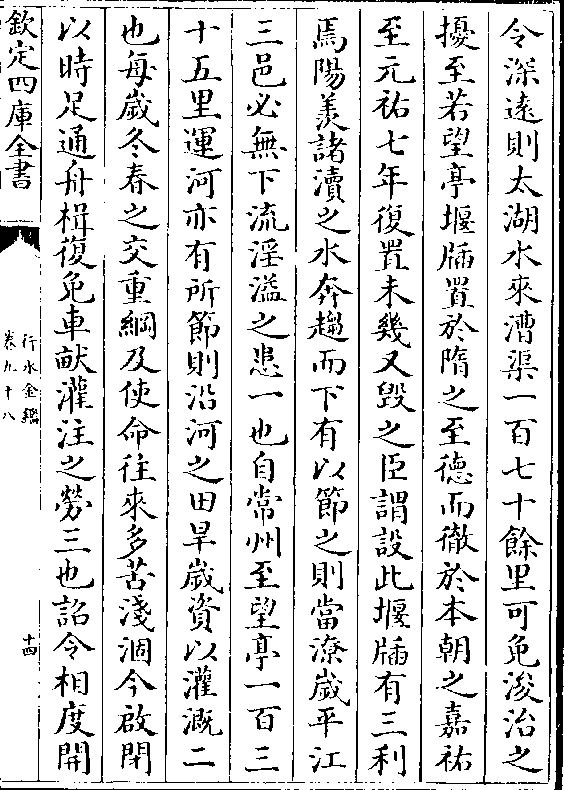 令深遠則太湖水來漕渠一百七十餘里可免浚治之
擾至若望亭堰牐置於隋之至德而徹於本朝之嘉祐
至元祐七年復置未幾又毀之臣謂設此堰牐有三利
焉陽羨諸瀆之水奔趨而下有以節之則當潦歲平江
三邑必無下流淫溢之患一也自常州至望亭一百三
十五里運河亦有所節則沿河之田旱歲資以灌溉二
也每歲冬春之交重綱及使命往來多苦淺涸今啟閉
以時足通舟楫復免車畎灌注之勞三也詔令相度開
欽定四庫全書
行水金鑑
卷九十八
十四